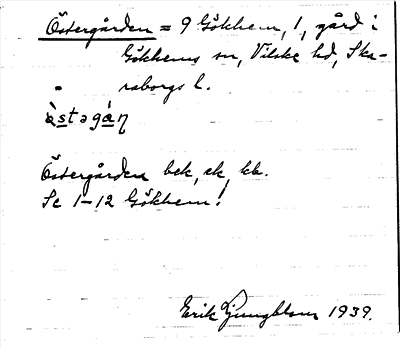 Östergården = 9 Gökhem, 1, gård i
Gökhems sn, Vilske hd, Ska-
raborgs l.
ə̀stəgán
Östergården bek, ek, kb.
Se 1–12 Gökhem!
Erik Ljungblom 1939.